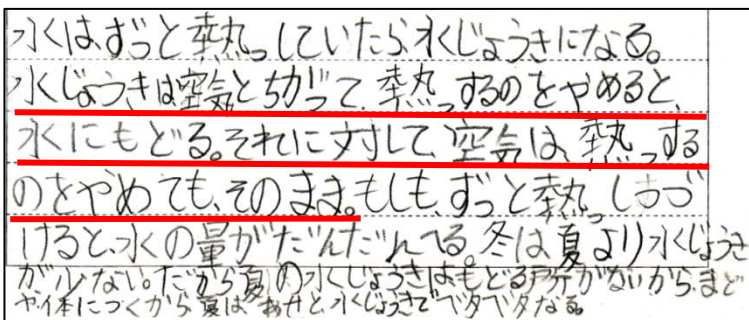 水は、ずっと熱っしていたら、水じょうきになる。
水じょうきは空気とちがって、熱っするのをやめると、
水にもどる。それに対して、空気は、熱っする
のをやめても、そのまま。もしも、ずっと熱っしつづ
けると、水の量がだんだんへる。冬は夏より水じょうき
が少ない。だから夏の水じょうきはもどる戸斤がないから、まど
や体につくから夏はあせと、水じょうきでベタベタなる。